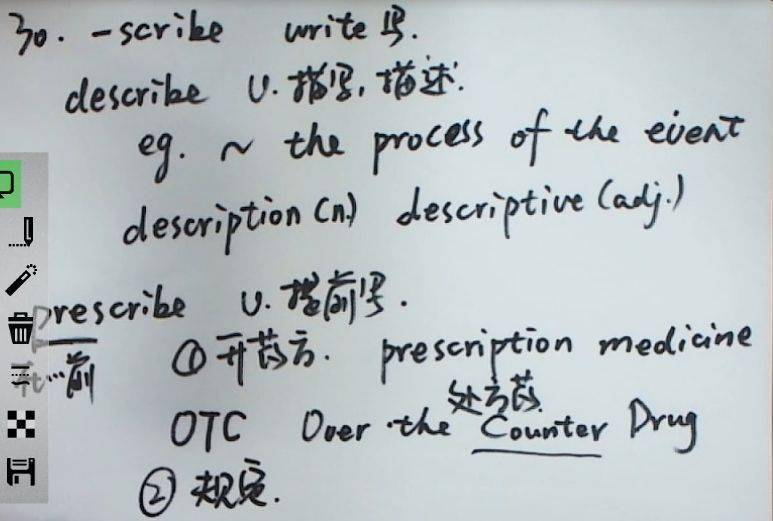 30. -scribe write 写.
describe v. 描写, 描述.
eg. ~ the process of the event
description (n.) descriptive (adj.)
prescribe v. 提前写.
在…前 ① 开药方. prescription medicine
处方药
OTC Over the Counter Drug
② 规定.